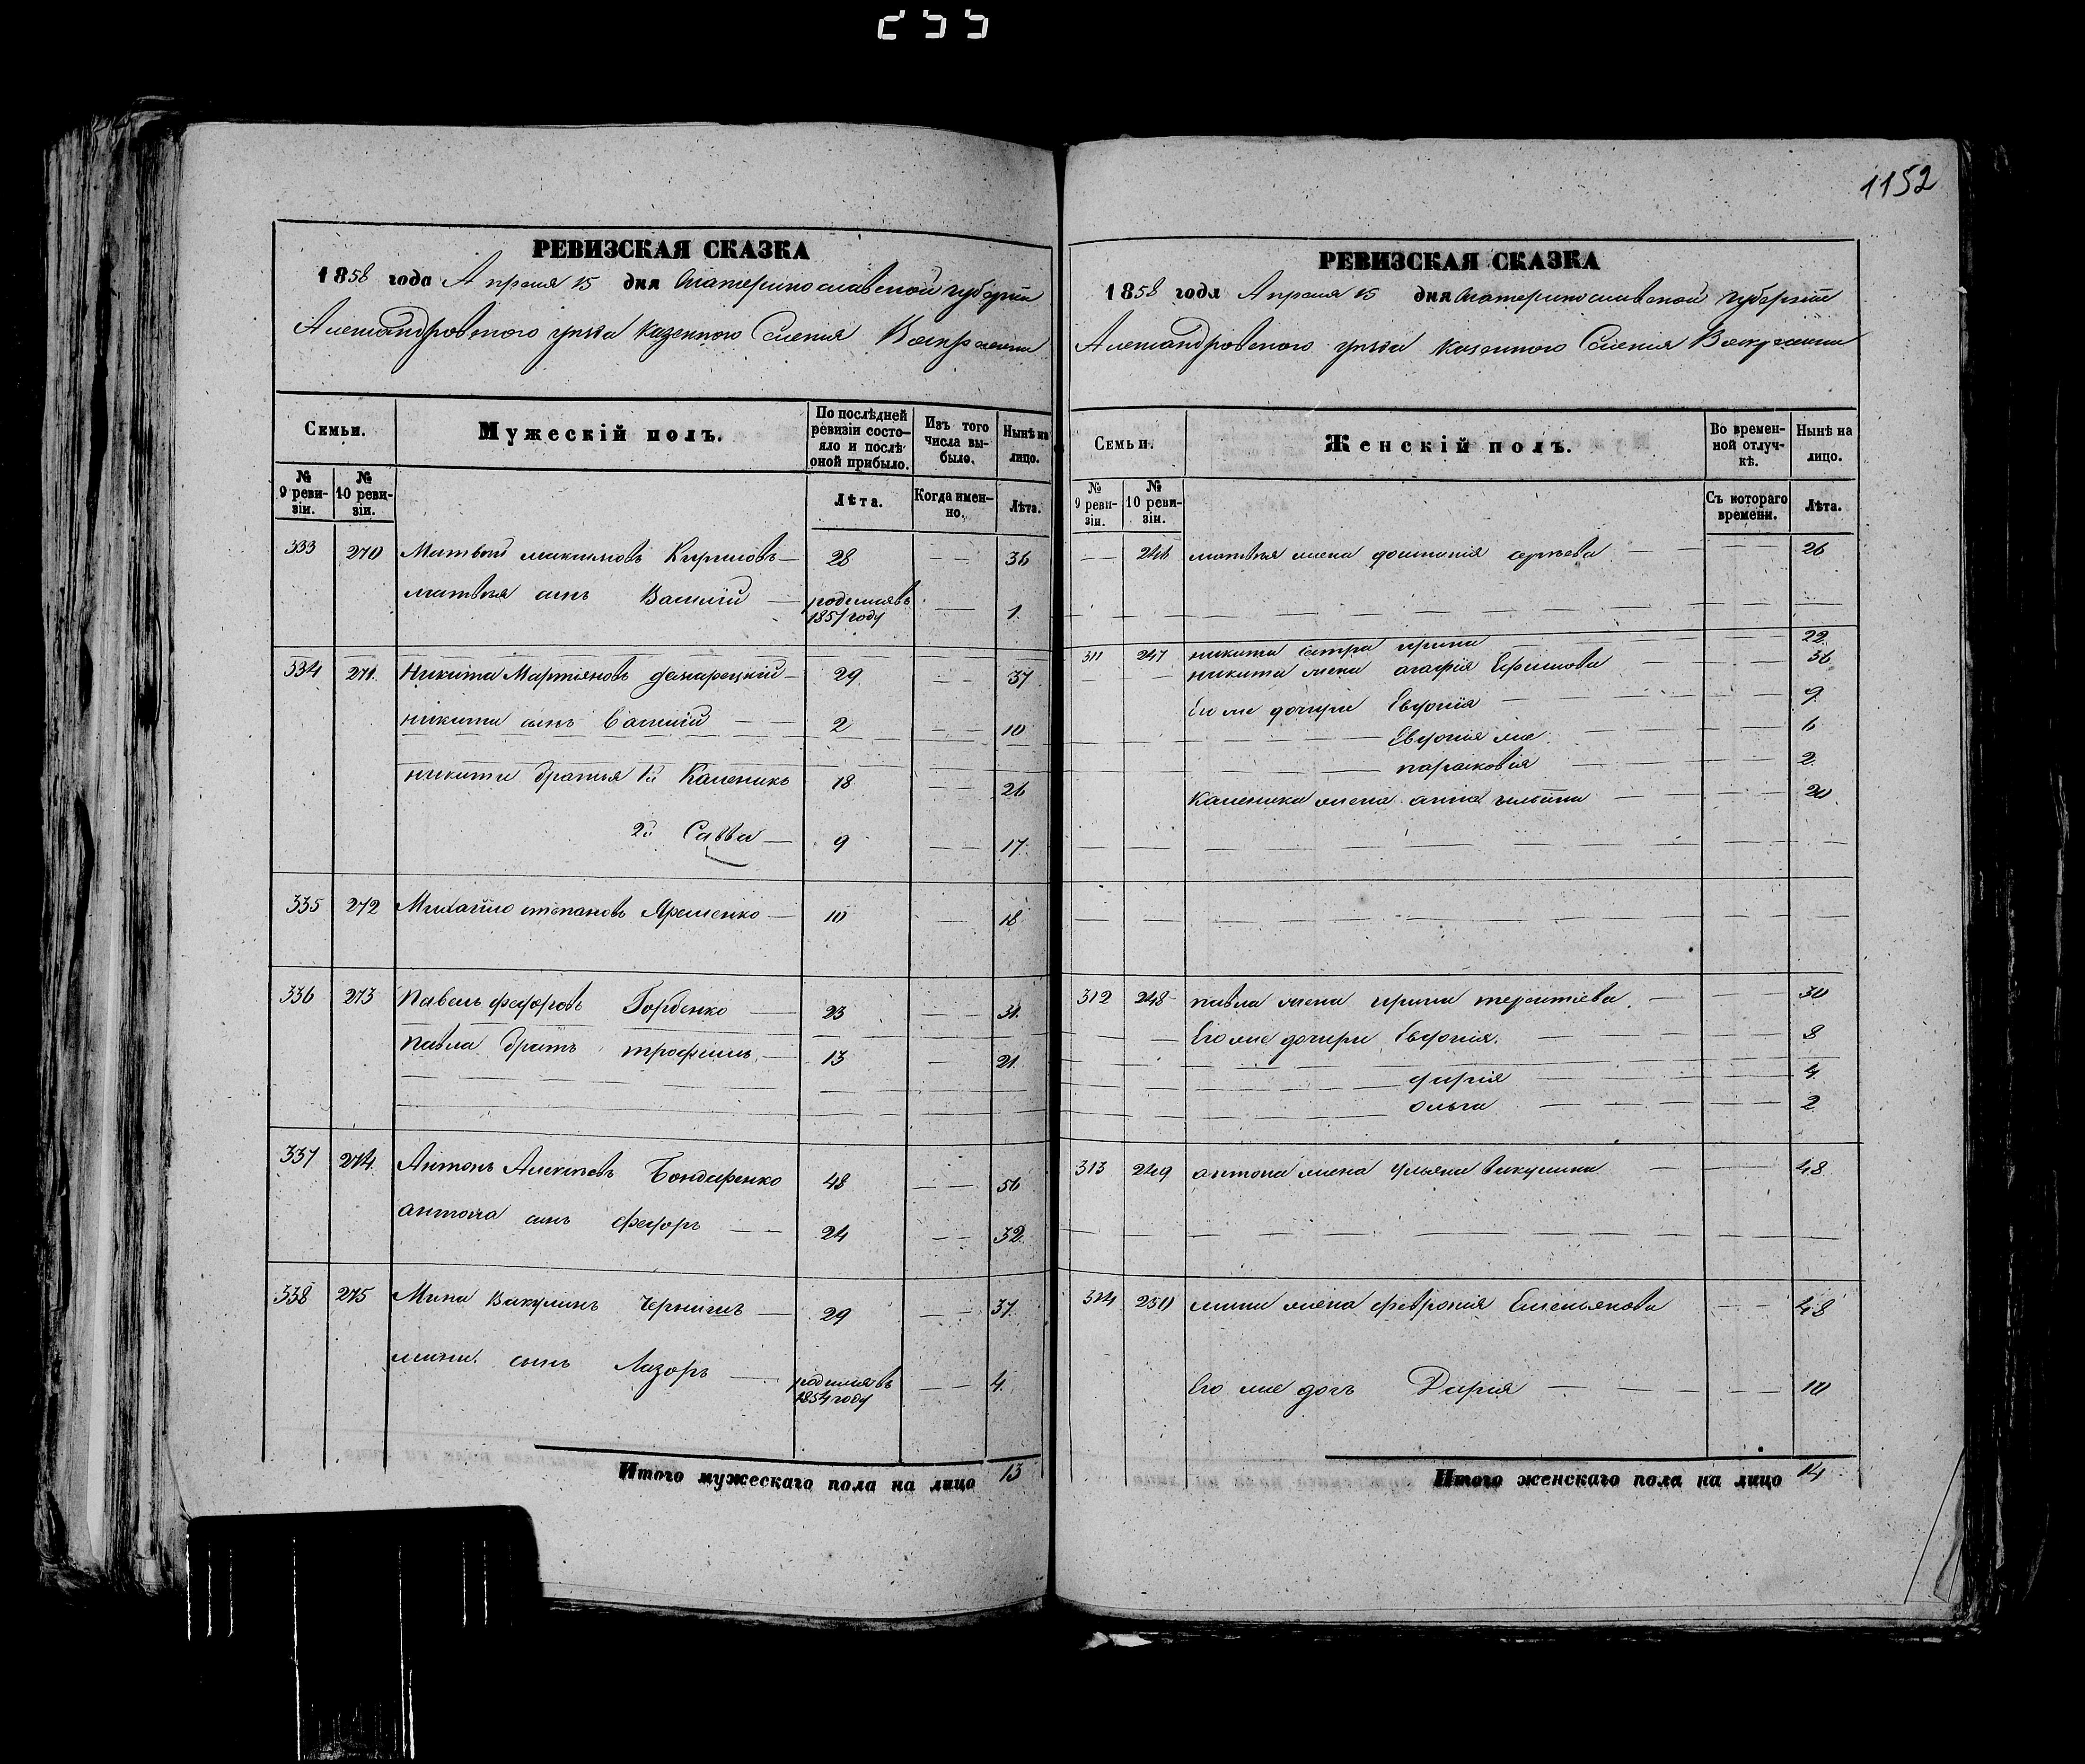 1152
РЕВИЗСКАЯ СКАЗКА
1858 года Апреля 15 дня Екатеринославской губернии
Александровского уезда казенного Селения Воскресенки
Семьи.
Мужескій полъ.
По послѣдней ревизіи состояло и послѣ оной прибыло.
Изъ того числа выбыло.
Нынѣ на лицо.
№ 9 ревизіи.
№ 10 ревизіи.
Лѣта.
Когда именно.
Лѣта.
333 270 Матвей Максимовъ Кириловъ — 28 — — 36
матвея сынъ Василий — родился въ 1857 году — 1
334 271 Никита Мартіяновъ — 29 37
никиты сынъ Василий — — 2 — — 10
никиты братья 1й Каленикъ 18 — — 26
2й Савва — 9 — — 17
335 272 Михайло степановъ Яременко — 10 — — 18
336 273 Павелъ федоровъ Горбенко — 23 — — 31
Павла братъ трофимъ — 13 — 21
337 274 Антонъ Алексѣевъ Бондаренко 48 — — 56
антона сынъ федоръ — — 24 — — 32
338 275 Мина Вакулинъ Чернишъ — 29 — — 37
мины сынъ Лазоръ — родился въ 1854 году — — 4
Итого мужескаго пола на лицо 13
РЕВИЗСКАЯ СКАЗКА
1858 года Апреля 15 дня Екатеринославской губерніи
Александровского уезда казенного Селенія Воскресенки
Семьи.
Женскій полъ.
Во временной отлучкѣ.
Нынѣ на лицо.
№ 9 ревизіи.
№ 10 ревизіи.
Съ котораго времени.
Лѣта.
— 246 матвея жена сергѣева — — — 26
311 247 никиты сестра ирина 22
никиты жена агафія Ефимова 36
Его же дочери Евдокія — 9
Евдокія же 6
парасковія 2
Каленика жена анна ильина 20
312 248 павла жена ирина терентіева — 30
Его же дочери Евдокія 8
дарія 4
ольга 2
313 249 антона жена ульяна вакулина 48
314 250 мины жена февронія Емельянова 48
Его же дочь Дарія 10
Итого женскаго пола на лицо 14